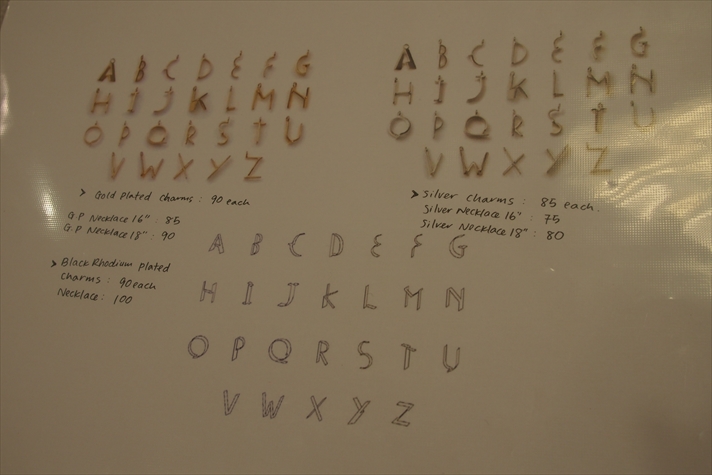 A B C D E F G
H I J K L M N
O P Q R S T U
V W X Y Z
> Gold Plated charms : 90 each
G.P Necklace 16" : 85
G.P Necklace 18" : 90
A B C D E F G
H I J K L M N
O P Q R S T U
V W X Y Z
> Silver charms : 85 each.
Silver Necklace 16" : 75
Silver Necklace 18" : 80
> Black Rhodium plated
charms : 90 each
Necklace : 100
A B C D E F G
H I J K L M N
O P Q R S T U
V W X Y Z